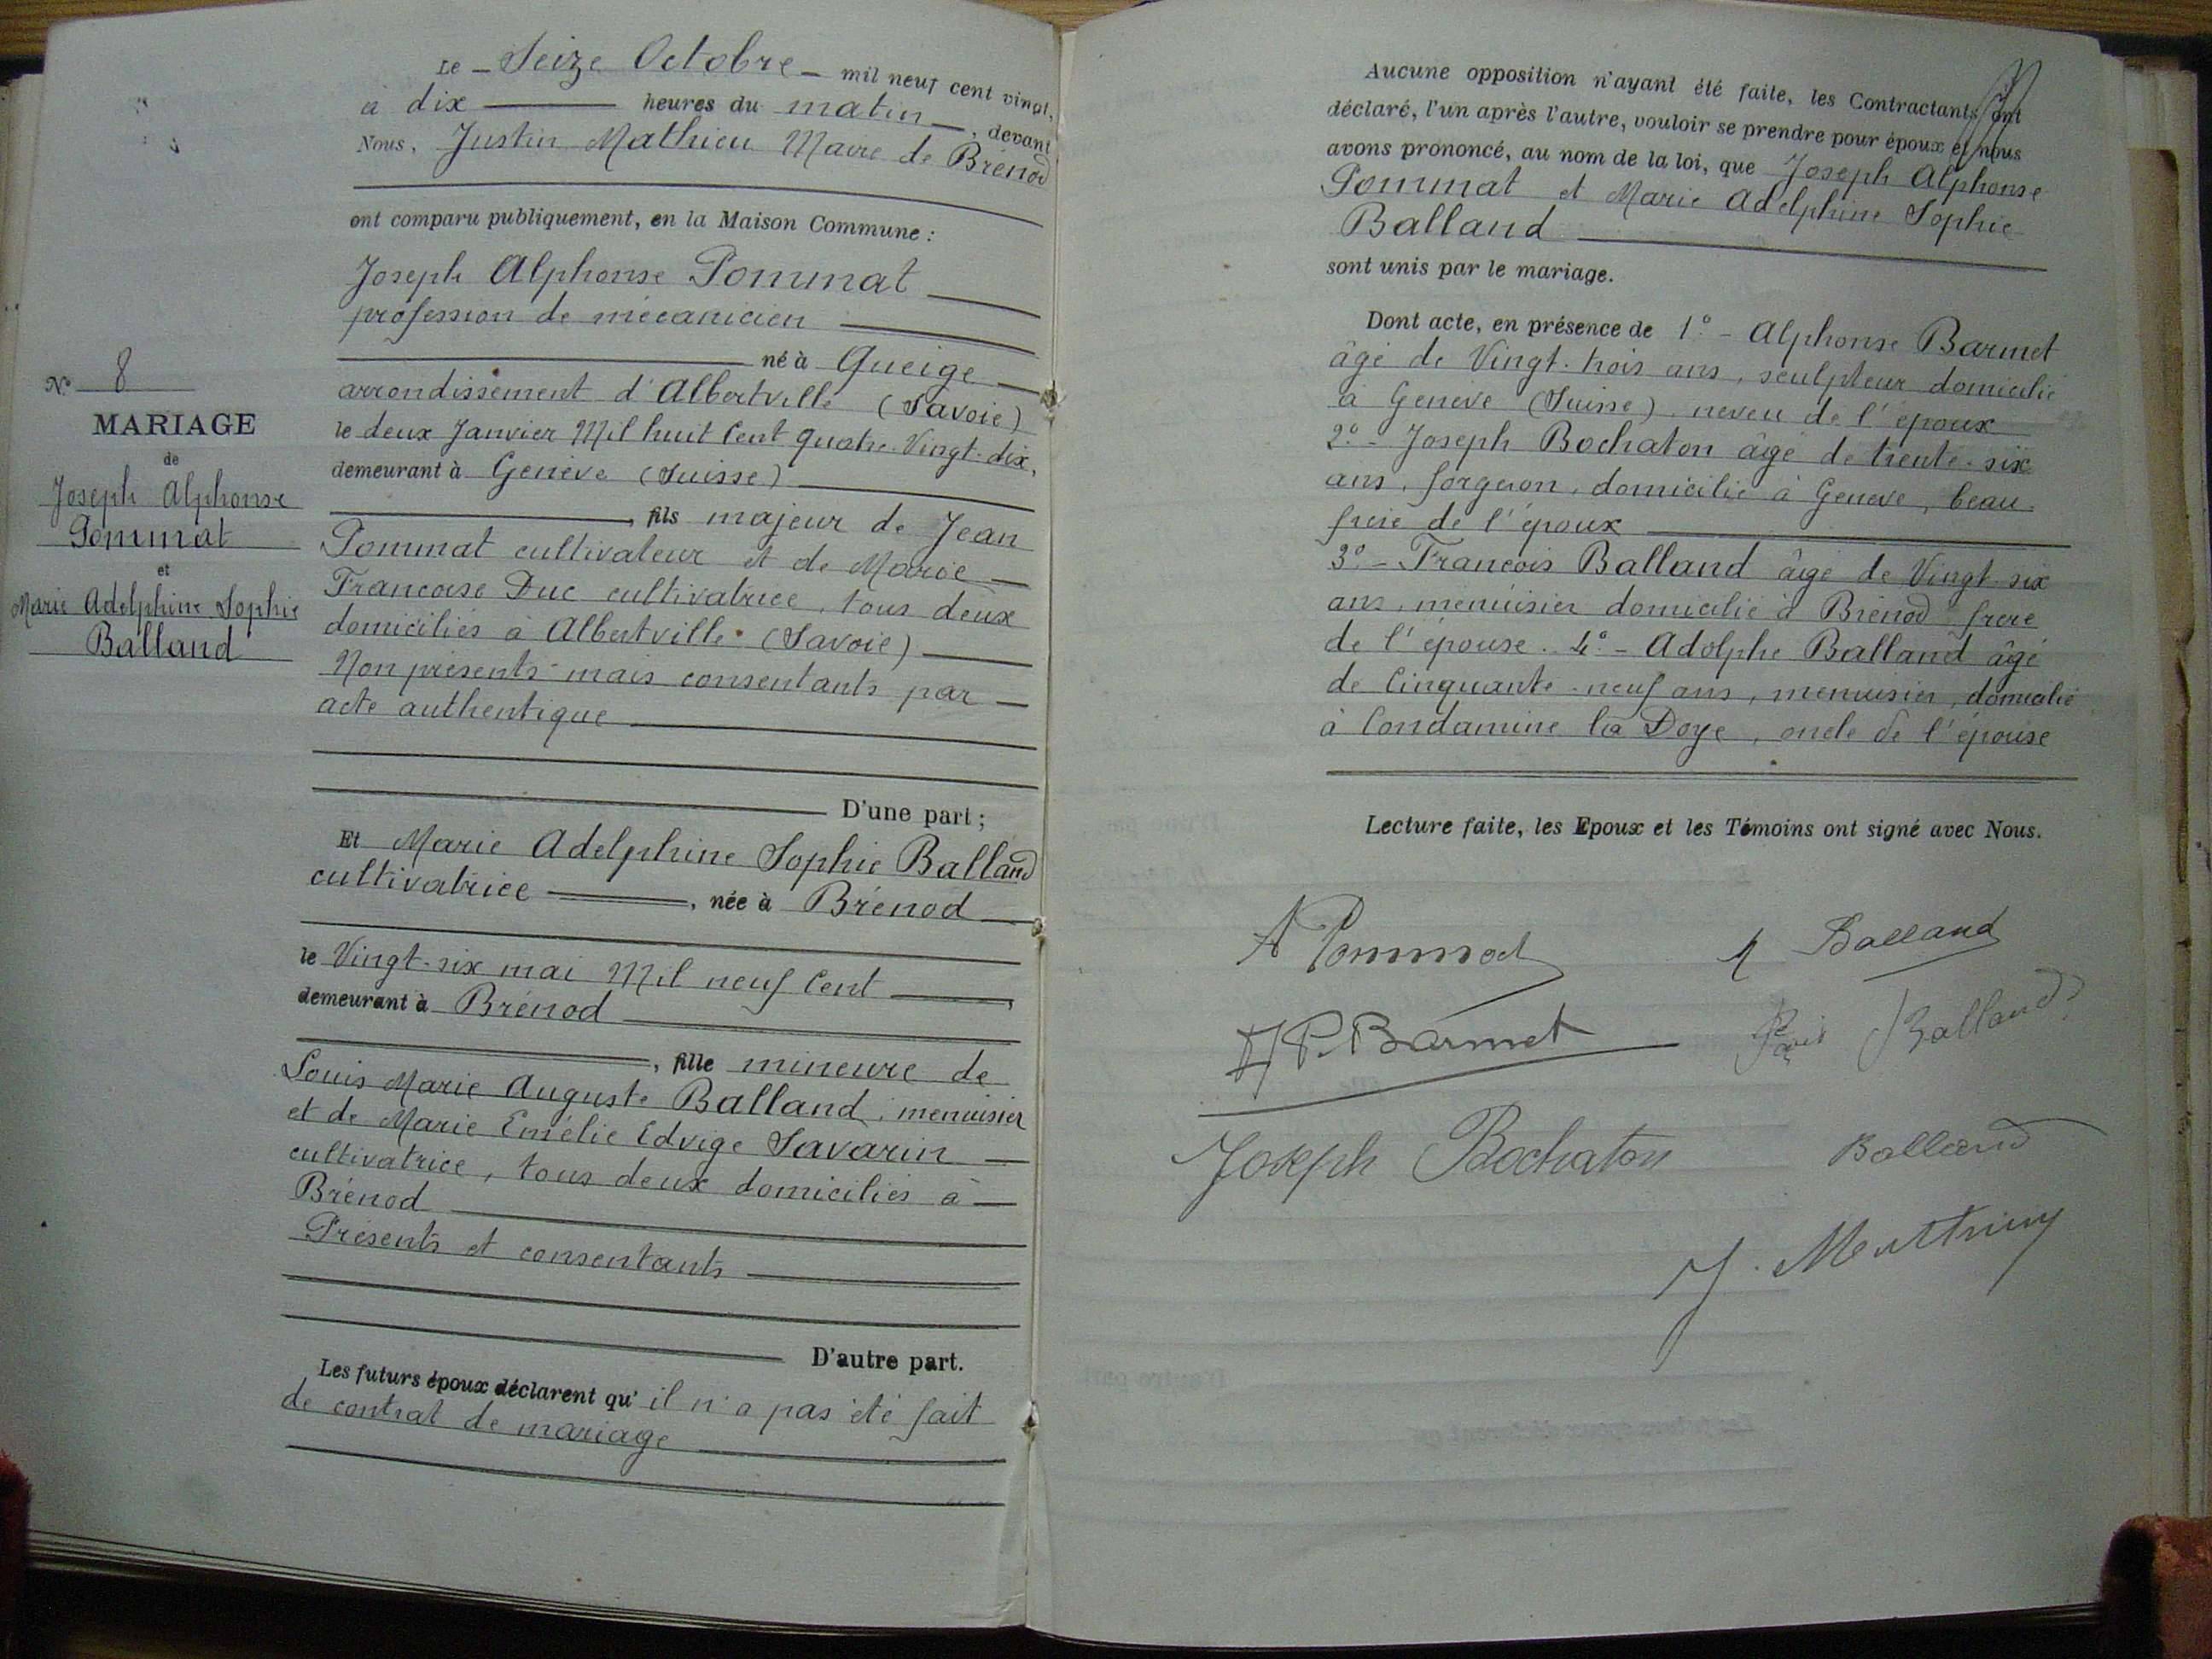 Le - Seize Octobre - mil neuf cent vingt,
à dix heures du matin, devant
Nous, Justin Mathieu Maire de Brénod
ont comparu publiquement, en la Maison Commune :
Joseph Alphonse Pommat
profession de mécanicien
né à Queige
arrondissement d'Albertville (Savoie)
le deux Janvier Mil huit Cent quatre-Vingt-dix,
demeurant à Genève (Suisse)
, fils majeur de Jean
Pommat cultivateur et de Marie
Francoise Duc cultivatrice, tous deux
domiciliés à Albertville (Savoie)
Non présents mais consentants par
acte authentique
D'une part ;
Et Marie Adelphine Sophie Balland
cultivatrice, née à Brénod
le Vingt-six mai Mil neuf Cent,
demeurant à Brénod
, fille mineure de
Louis Marie Auguste Balland, menuisier
et de Marie Emélie Edvige Savarin
cultivatrice, tous deux domiciliés à
Brénod
Présents et consentants
D'autre part.
Les futurs époux déclarent qu'il n'a pas été fait
de contrat de mariage
N° 8
MARIAGE
de
Joseph Alphonse
Pommat
et
Marie Adelphine Sophie
Balland
Aucune opposition n'ayant été faite, les Contractants ont
déclaré, l'un après l'autre, vouloir se prendre pour époux et nous
avons prononcé, au nom de la loi, que Joseph Alphonse
Pommat et Marie Adelphine Sophie
Balland
sont unis par le mariage.
Dont acte, en présence de 1° - Alphonse Barmet
âgé de Vingt-trois ans, sculpteur domicilié
à Genève (Suisse) neveu de l'époux
2° - Joseph Bochaton âgé de trente-six
ans, forgeron, domicilié à Genève, beau-
frère de l'époux
3° - François Balland âgé de Vingt-six
ans, menuisier domicilié à Brénod frère
de l'épouse. 4° - Adolphe Balland âgé
de Cinquante-neuf ans, menuisier, domicilié
à Condamine la Doye, oncle de l'épouse
Lecture faite, les Epoux et les Témoins ont signé avec Nous.
A Pommat
Balland
A P. Barmet
Balland
Joseph Bochaton
Balland
J. Matthieu